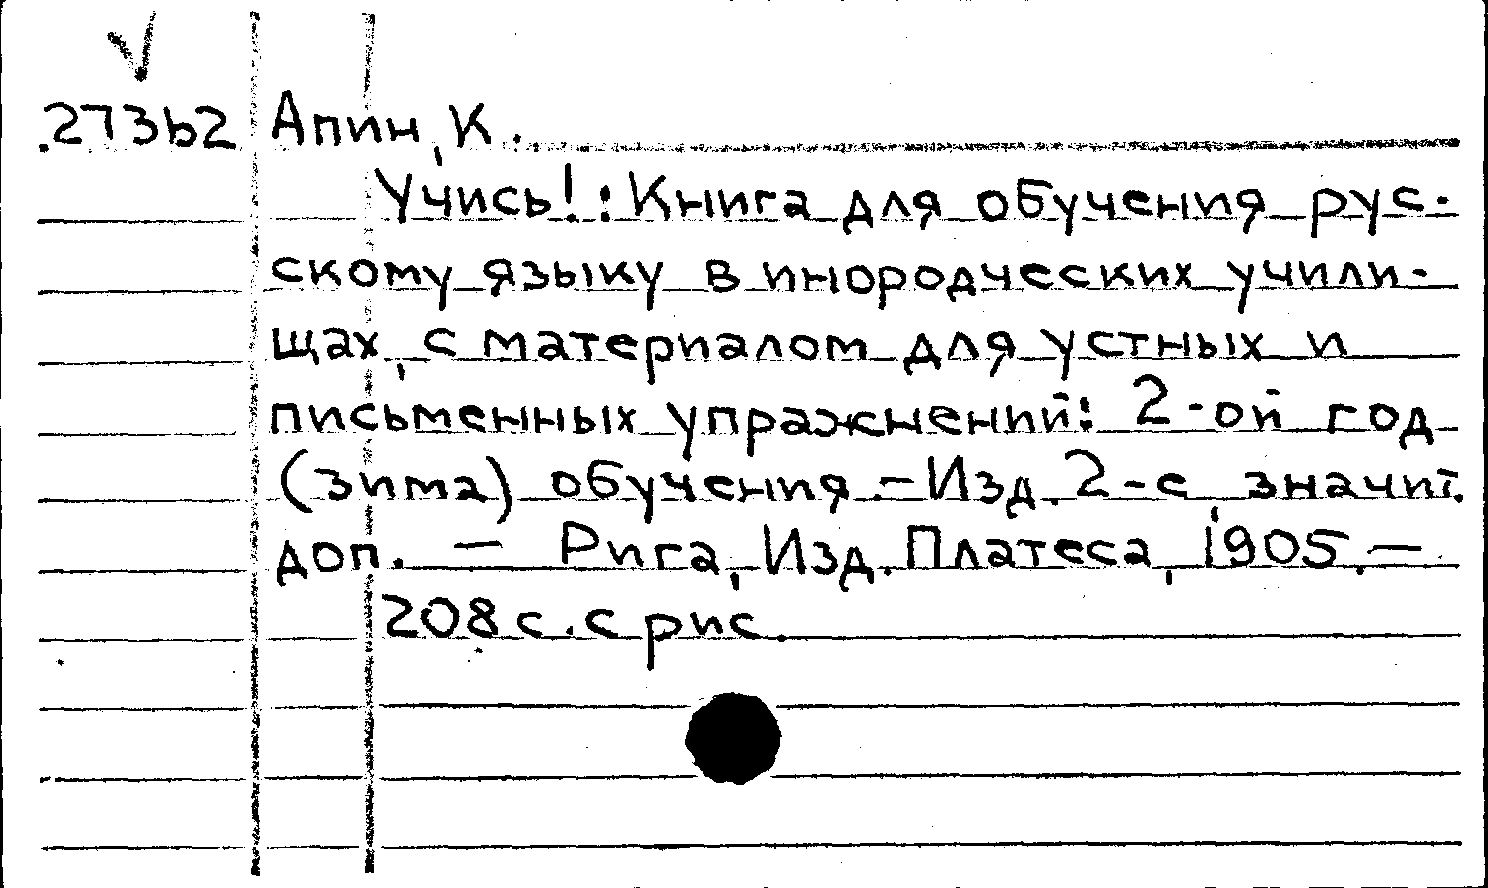 .273b2 Апин, К.
Учись! : Книга для обучения рус-
скому языку в инородческих учили-
щах, с материалом для устных и
письменных упражнений: 2-ой год
(зима) обучения. – Изд. 2-е, значит.
доп. – Рига, Изд. Платеса, 1905. –
208 с. с рис.